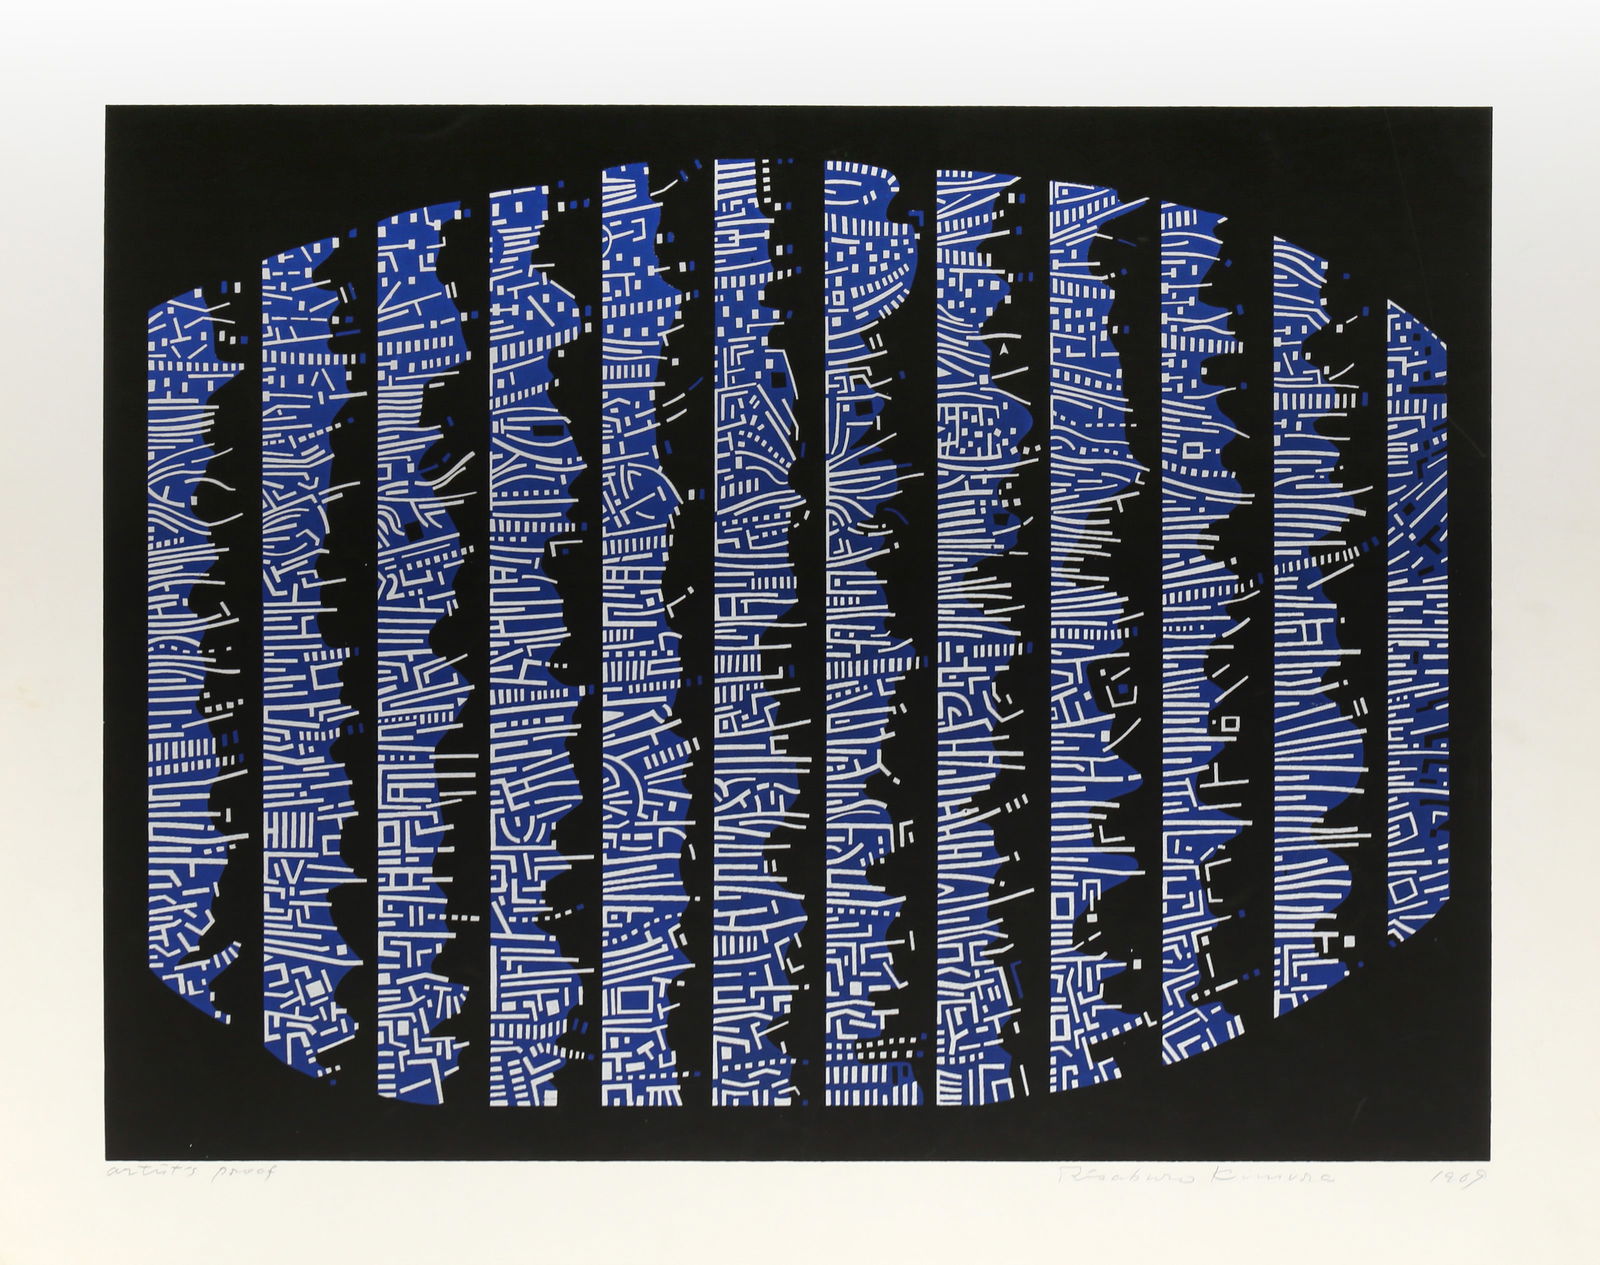 artist's proof
Risaburo Kimura 1969